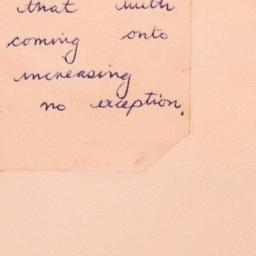 that with
coming onto
increasing
no exception.